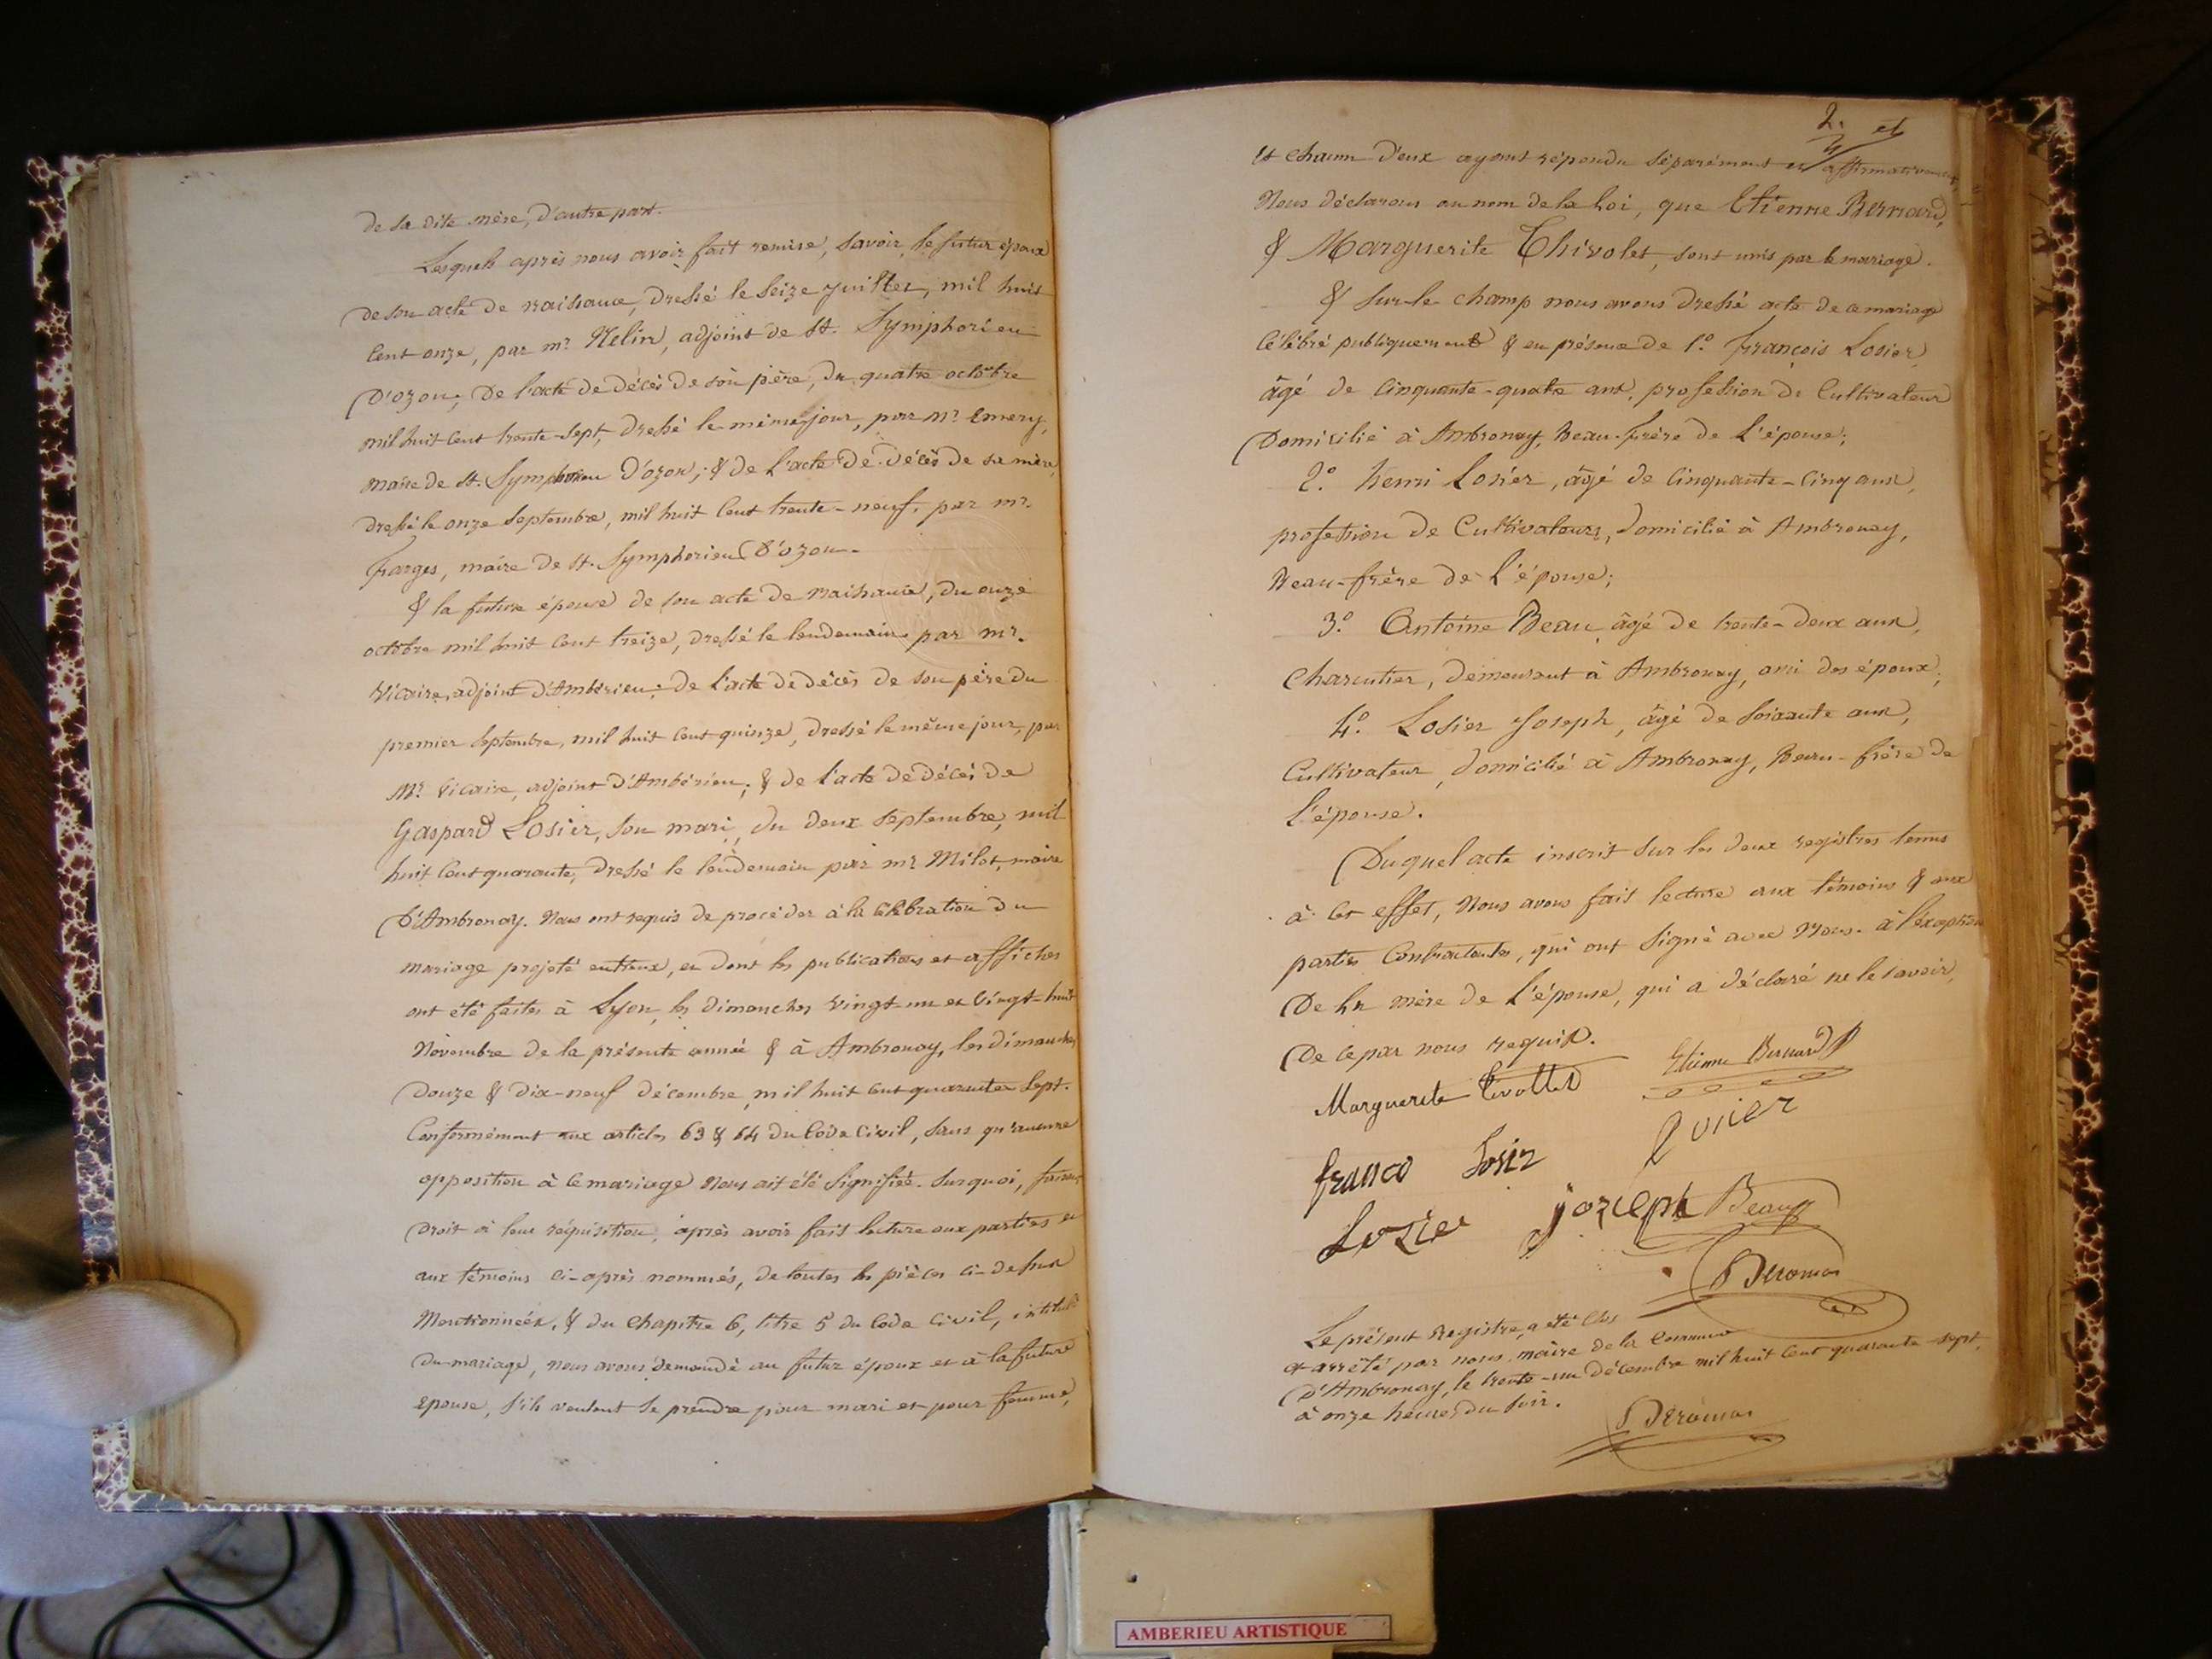 de sa dite mère, d'autre part.
Lesquels après nous avoir fait remise, savoir, le futur époux
de son acte de naissance, dressé le seize juillet, mil huit
cent onze, par mr. Nelin, adjoint de St. Symphorien
D'ozon; De l'acte de décès de son père, du quatre octobre
mil huit cent trente-sept, dressé le même jour, par Mr. Emery,
maire de St. Symphorien D'ozon; & de l'acte de décès de sa mère,
dressé le onze Septembre, mil huit cent trente-neuf, par mr.
Farges, maire de St. Symphorien D'ozon.
& la future épouse de son acte de naissance, du onze
octobre mil huit cent treize, dressé le lendemain par mr.
Vicaire, adjoint d'Ambérieu; de l'acte de décès de son père du
premier Septembre, mil huit cent quinze, dressé le même jour, par
Mr. Vicaire, adjoint d'Ambérieu; & de l'acte de décès de
Gaspard Losier, son mari, du deux Septembre, mil
huit cent quarante, dressé le lendemain par mr. Milet, maire
D'Ambronay. Nous ont requis de procéder à la célébration du
mariage projeté entreux, et dont les publications et affiches
ont été faites à Lyon, les dimanches vingt-un et vingt-huit
Novembre de la présente année & à Ambronay, les dimanches
Douze & dix-neuf décembre, mil huit cent quarante sept.
Conformément aux articles 63 & 64 du Code Civil, sans qu'aucune
opposition à ce mariage nous ait été signifiée. Surquoi, faisant
Droit à leur réquisition, après avoir fait lecture aux parties et
aux témoins ci-après nommés, de toutes les pièces ci-dessus
Mentionnées, & du Chapitre 6, titre 5 du Code Civil, intitulé
du mariage, nous avons demandé au futur époux et à la future
épouse, s'ils veulent se prendre pour mari et pour femme,
2. et
4
et chacun d'eux ayant répondu séparément et affirmativement,
Nous déclarons au nom de la Loi, que Etienne Bernard,
& Marguerite Thivolet, sont unis par le mariage.
& sur-le-champ nous avons dressé acte de ce mariage
célébré publiquement & en présence de 1.o François Losier,
âgé de cinquante-quatre ans, profession de Cultivateur
Domicilié à Ambronay, Beau-frère de l'épouse;
2.o henri Losier, âgé de cinquante-cinq ans,
profession de Cultivateur, domicilié à Ambronay,
Beau-frère de l'épouse;
3.o Antoine Beau, âgé de trente-deux ans,
Charcutier, demeurant à Ambronay, ami des époux;
4.o Losier Joseph, âgé de soixante ans,
Cultivateur, domicilié à Ambronay, Beau-frère de
l'épouse.
Duquel acte inscrit sur les deux registres tenus
à cet effet, Nous avons fait lecture aux témoins & aux
parties Contractantes, qui ont signé avec Nous. à l'exception
De la mère de l'épouse, qui a déclaré ne le savoir,
De ce par nous requise.
Marguerite Tivollet Etienne Bernard
franco Losier
Losier jozieph Beau
Deromas
Le présent Registre, a été clos
et arrêté par nous, maire de la Commune
D'Ambronay, le trente-un décembre mil huit cent quarante-sept,
à onze heures du soir.
Deromas
AMBERIEU ARTISTIQUE